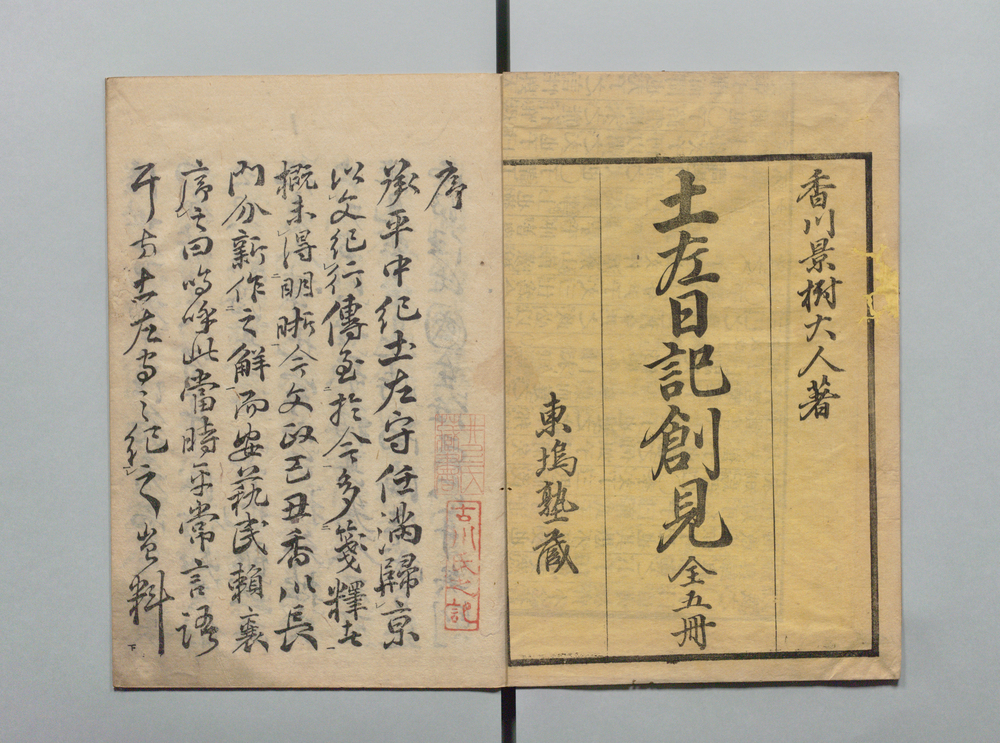 香川景樹大人著
土左日記創見 全五冊
東塢塾蔵
序
承平中紀土左守任満歸京
以文紀行傳至於今多箋釋甚
概未得明晰今文政己丑香川長
門分新作之解而安藝民頼襄
序之曰嗚呼此當時平常言語
土左守之紀之料
古川氏之記